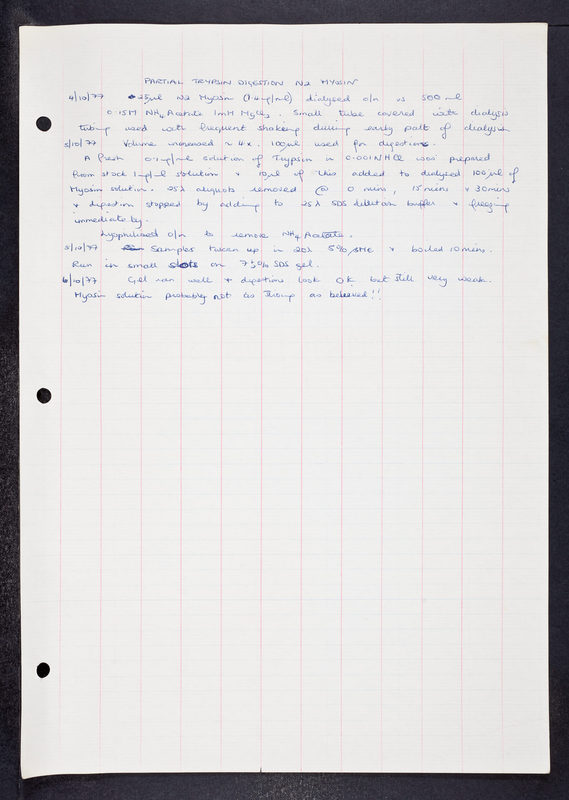 PARTIAL TRYPSIN DIGESTION N2 MYOSIN
4/10/77 25µl N2 Myosin (1·4mg/ml) dialysed o/n vs 500 ml
0·15M NH4 Acetate 1mM MgCl2. Small tube covered with dialysis
tubing used with frequent shaking during early part of dialysis
5/10/77 Volume increased ~ 4x. 100µl used for digestions.
A fresh 0·1mg/ml solution of Trypsin in 0·001N HCl was prepared
from stock 1mg/ml solution + 10µl of this added to dialysed 100µl of
Myosin solution. 25λ aliquots removed @ 0 mins, 15 mins + 30mins
+ digestion stopped by adding to 25λ SDS dilution buffer + freezing
immediately.
Lyophilised o/n to remove NH4 Acetate.
5/10/77 Samples taken up in 20λ 5% βME + boiled 10mins.
Run in small slots on 7½% SDS gel.
6/10/77 Gel ran well + digestions look OK but still very weak.
Myosin solution probably not as strong as believed!!